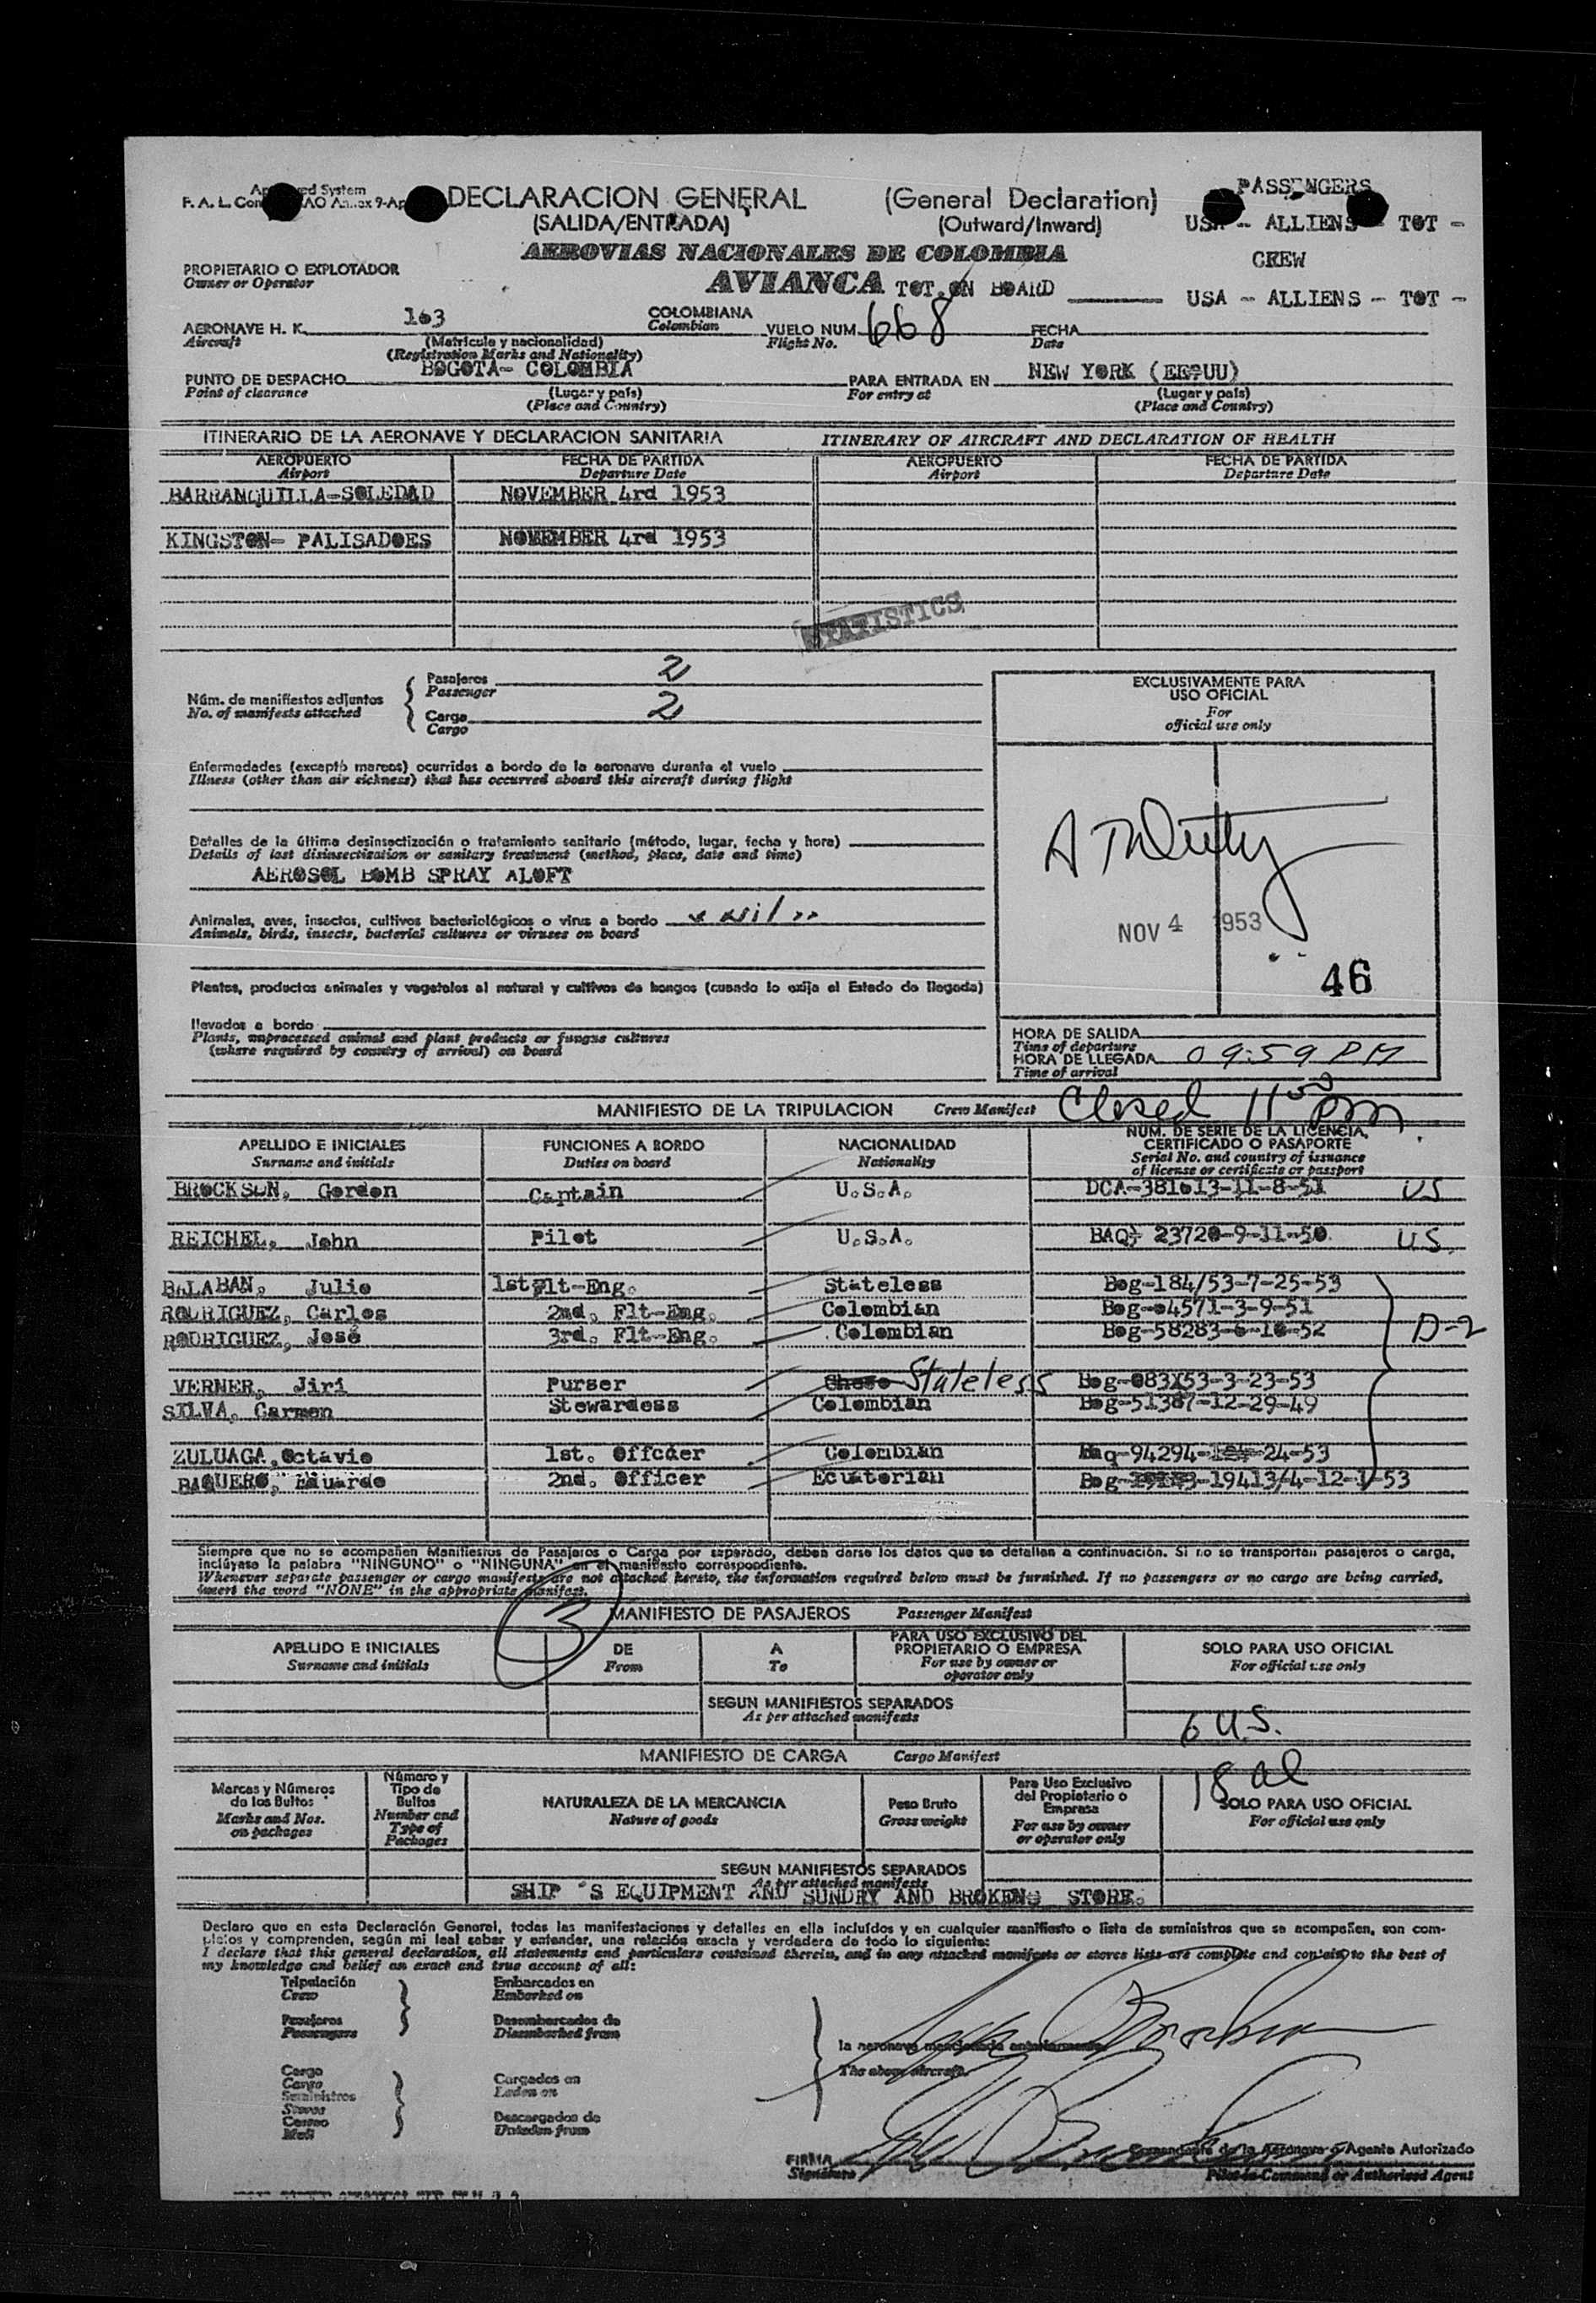 DECLARACION GENERAL (General Declaration) PASSENGERS
(SALIDA/ENTRADA) (Outward/Inward) USA - ALLIENS - TOT -
AEROVIAS NACIONALES DE COLOMBIA CREW
PROPIETARIO O EXPLOTADOR AVIANCA TOT. ON BOARD USA - ALLIENS - TOT -
Owner or Operator
AERONAVE H. K. 163 COLOMBIANA VUELO NUM. 668 FECHA
Aircraft (Matrícula y nacionalidad) Colombian Flight No. Date
(Registration Marks and Nationality)
PUNTO DE DESPACHO BOGOTA- COLOMBIA PARA ENTRADA EN NEW YORK (EE?UU)
Point of clearance (Lugar y país) For entry at (Lugar y país)
(Place and Country) (Place and Country)
ITINERARIO DE LA AERONAVE Y DECLARACION SANITARIA ITINERARY OF AIRCRAFT AND DECLARATION OF HEALTH
AEROPUERTO FECHA DE PARTIDA AEROPUERTO FECHA DE PARTIDA
Airport Departure Date Airport Departure Date
BARRANQUILLA-SOLEDAD NOVEMBER 4rd 1953
KINGSTON- PALISADOES NOVEMBER 4rd 1953
STATISTICS
Núm. de manifiestos adjuntos Pasajeros 2
No. of manifests attached Passenger
Carga 2
Cargo
EXCLUSIVAMENTE PARA
USO OFICIAL
For
official use only
Enfermedades (excepto mareos) ocurridas a bordo de la aeronave durante el vuelo
Illness (other than air sickness) that has occurred aboard this aircraft during flight
Detalles de la última desinsectización o tratamiento sanitario (método, lugar, fecha y hora)
Details of last disinsectization or sanitary treatment (method, place, date and time)
AEROSOL BOMB SPRAY ALOFT
Animales, aves, insectos, cultivos bacteriológicos o virus a bordo " nil "
Animals, birds, insects, bacterial cultures or viruses on board
NOV 4 1953
46
Plantas, productos animales y vegetales al natural y cultivos de hongos (cuando lo exija el Estado de llegada)
llevados a bordo
Plants, unprocessed animal and plant products or fungus cultures
(where required by country of arrival) on board
HORA DE SALIDA
Time of departure
HORA DE LLEGADA 09:59 PM
Time of arrival
MANIFIESTO DE LA TRIPULACION Crew Manifest Closed 11 50 pm
APELLIDO E INICIALES FUNCIONES A BORDO NACIONALIDAD NUM. DE SERIE DE LA LICENCIA, CERTIFICADO O PASAPORTE
Surname and initials Duties on board Nationality Serial No. and country of issuance of license or certificate or passport
BROCKSON, Gordon Captain U.S.A. DCA-381613-11-8-51 US
REICHEL, John Pilot U.S.A. BAQ- 23720-9-11-50 US
BALABAN, Julio 1st Flt-Eng. Stateless Bog-184/53-7-25-53
RODRIGUEZ, Carlos 2nd. Flt-Eng. Colombian Bog-04571-3-9-51
RODRIGUEZ, José 3rd. Flt-Eng. Colombian Bog-58283-6-10-52 D-2
VERNER, Jiri Purser Stateless Bog-083153-3-23-53
SILVA, Carmen Stewardess Colombian Bog-51387-12-29-49
ZULUAGA, Octavio 1st. Offcder Colombian Baq-94294- -24-53
BAQUERO, Eduardo 2nd. Officer Ecuatorian Bog- -19413/4-12-1/-53
Siempre que no se acompañen Manifiestos de Pasajeros o Carga por separado, deben darse los datos que se detallan a continuación. Si no se transportan pasajeros o carga,
inclúyase la palabra "NINGUNO" o "NINGUNA" en el manifiesto correspondiente.
Whenever separate passenger or cargo manifests are not attached hereto, the information required below must be furnished. If no passengers or no cargo are being carried,
insert the word "NONE" in the appropriate manifest.
3 MANIFIESTO DE PASAJEROS Passenger Manifest
APELLIDO E INICIALES DE A PARA USO EXCLUSIVO DEL PROPIETARIO O EMPRESA SOLO PARA USO OFICIAL
Surname and initials From To For use by owner or operator only For official use only
SEGUN MANIFIESTOS SEPARADOS
As per attached manifests
6 U.S.
MANIFIESTO DE CARGA Cargo Manifest
18 al
Marcas y Números de los Bultos Número y Tipo de Bultos NATURALEZA DE LA MERCANCIA Peso Bruto Para Uso Exclusivo del Propietario o Empresa SOLO PARA USO OFICIAL
Marks and Nos. on packages Number and Type of Packages Nature of goods Gross weight For use by owner or operator only For official use only
SEGUN MANIFIESTOS SEPARADOS
As per attached manifests
SHIP 'S EQUIPMENT AND SUNDRY AND BROKEN STORE.
Declaro que en esta Declaración General, todas las manifestaciones y detalles en ella incluídos y en cualquier manifiesto o lista de suministros que se acompañen, son com-
pletos y comprenden, según mi leal saber y entender, una relación exacta y verdadera de todo lo siguiente:
I declare that this general declaration, all statements and particulars contained therein, and in any attached manifests or stores lists are complete and contain to the best of
my knowledge and belief an exact and true account of all:
Tripulación Embarcados en
Crew Embarked on
Pasajeros Desembarcados de
Passengers Disembarked from
la aeronave mencionada anteriormente.
The above aircraft.
Carga Cargados en
Cargo Laden on
Suministros
Stores Descargados de
Correo Unladen from
Mail
FIRMA Comandante de la Aeronave o Agente Autorizado
Signature Pilot-in-Command or Authorized Agent